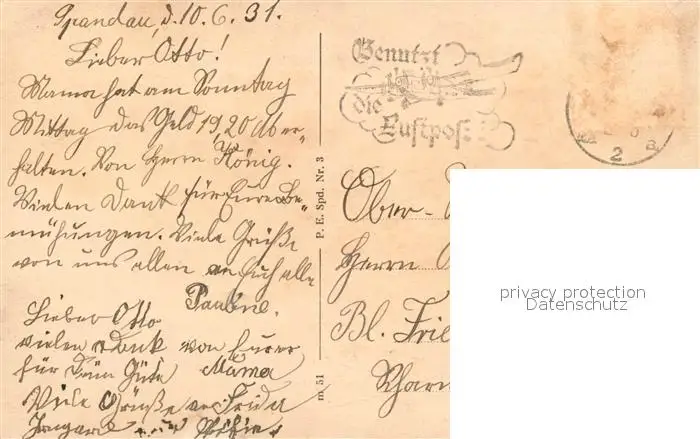 Spandau, d. 10.6.31.
Lieber Otto!
Mama hat am Sonntag
Mittag das Geld 19,20 M er-
halten. Von Herrn König.
Vielen Dank für Eure Be-
mühungen. Viele Grüße
von uns allen an Euch alle
Pauline.
Lieber Otto
vielen Dank von Eurer
für Deine Güte Mama
Viele Grüße an Frida
Irmgard
Benutzt
die
Luftpost
2 a
P. E. Spd. Nr. 3
m 51
Ober-
Herrn
Bl. Frie
Schar
privacy protection
Datenschutz